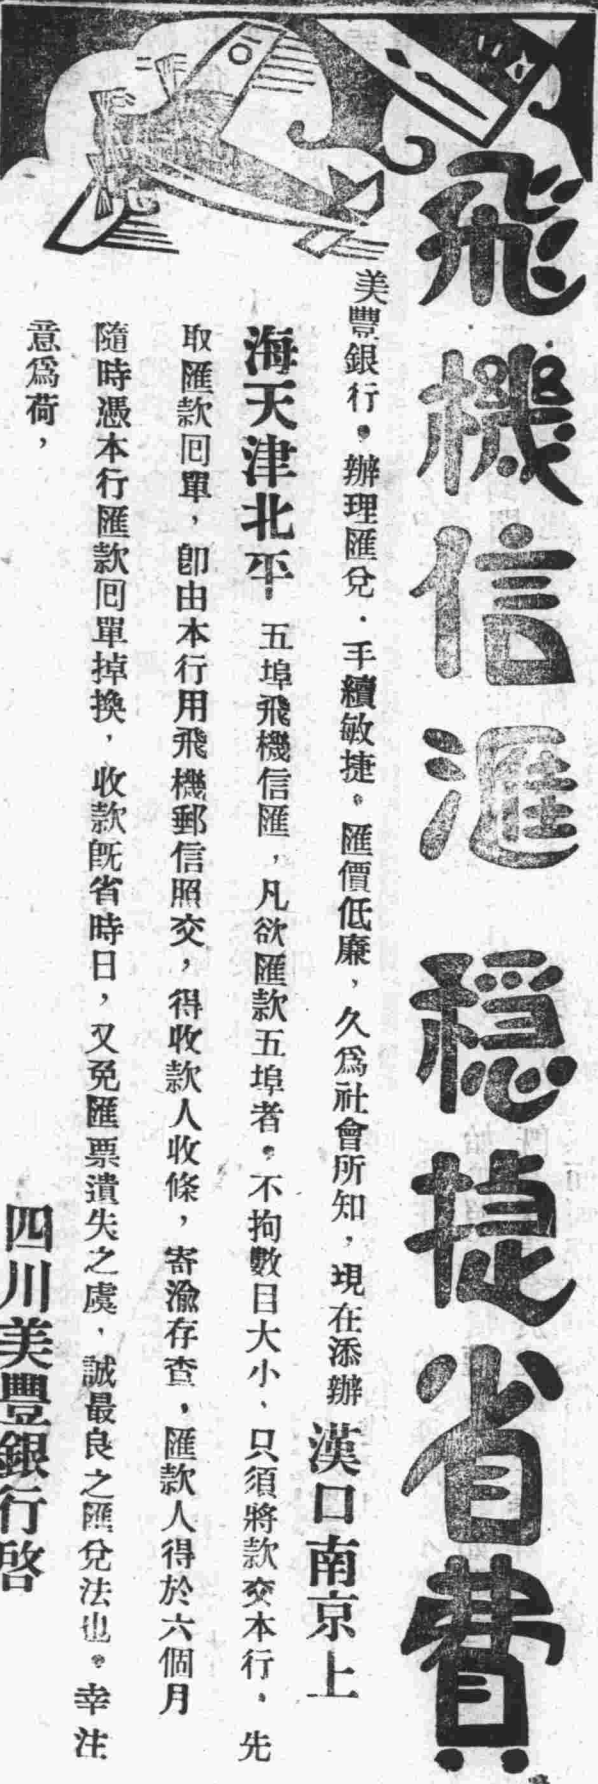 飛機信滙 穩捷省費
美豐銀行。辦理匯兌．手續敏捷。匯價低廉，久爲社會所知，現在添辦 漢口南京上
海天津北平 五埠飛機信匯，凡欲匯款五埠者。不拘數目大小、只須將款交本行，先
取匯款回單，卽由本行用飛機郵信照交，得收款人收條，寄渝存查，匯款人得於六個月
隨時憑本行匯款回單掉換，收款旣省時日，又免匯票遺失之虞，誠最良之匯兌法也。幸注
意爲荷，
四川美豐銀行啓